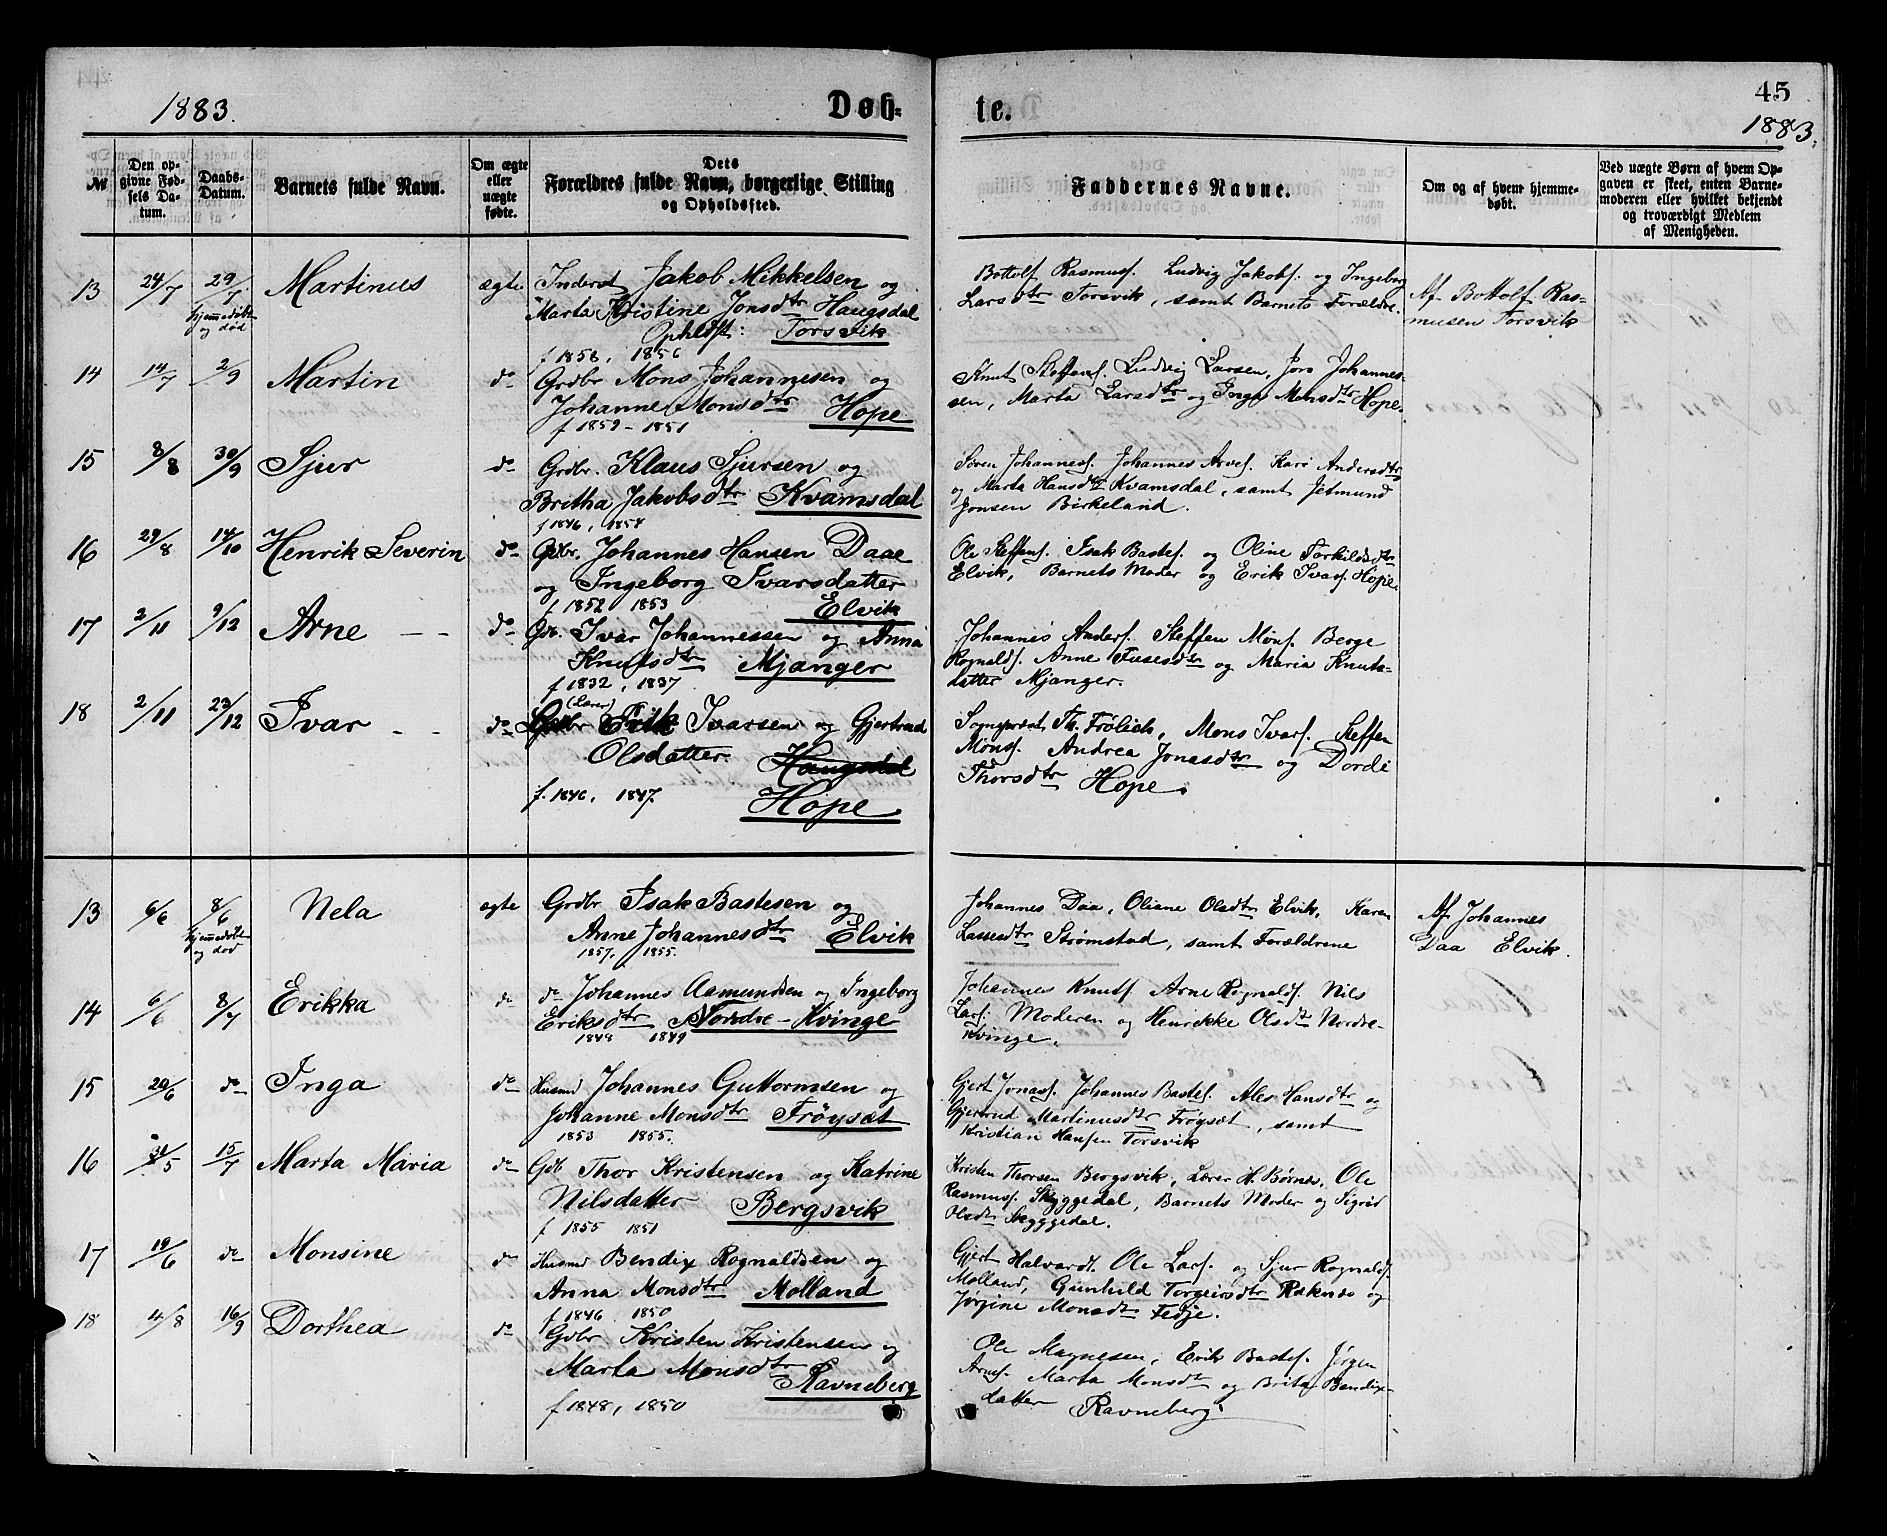 1883.
Døb-
te.
45
1883.
№
Den op-
givne Fød-
sels Da-
tum.
Daabs-
Datum.
Barnets fulde Navn.
Om ægte
eller
uægte
fødte.
Dets
Forældres fulde Navn, borgerlige Stilling
og Opholdssted.
Faddernes Navne.
Om og af hvem hjemme-
døbt.
Ved uægte Børn af hvem Op-
gaven er skeet, enten Barne-
moderen eller hvilket bekjendt
og troværdigt Medlem
af Menigheden.
13 24/7 29/7 Martinus ægte Inderst Jakob Mikkelsen og
Hjemmedøbt
og død
Marta Kristine Jonsdtr Haugsdal
Opholdst: Torsvik
f 1858, 1856
Bottolf Rasmuss. Ludvig Jakobs. og Ingeborg
Larsdtr Torsvik, samt Barnets Forældre.
Af Bottolf Ras-
musen Torsvik
14 14/7 2/9 Martin do Grdbr Mons Johannesen og
Johanne Monsdtr Hope
f 1859 - 1851
Knut Steffens. Ludvig Larsen, Jon Johannes-
sen, Marta Larsdtr og Inga Monsdtr Hope.
15 8/8 30/9 Sjur do Grdbr. Klaus Sjursen og
Britha Jakobsdtr Kvamsdal
f 1846, 1858
Søren Johanness. Johannes Arves. Kari Andersdtr
og Marta Hansdtr Kvamsdal, samt Jetmund
Jonsen Birkeland.
16 29/8 14/10 Henrik Severin do Gdbr. Johannes Hansen Daae
og Ingeborg Ivarsdatter
f 1852 1853 Elvik
Ole Steffens. Isak Bastes. og Oline Torkildsdtr
Elvik, Barnets Moder og Erik Ivars. Hope.
17 2/11 9/12 Arne - - do Gdb. Ivar Johannessen og Anna
Knutsdtr Mjanger
f 1832, 1837
Johannes Anders. Steffen Møns. Berge
Rognalds. Anne Tusesdtr og Maria Knuts-
datter Mjanger.
18 2/11 23/12 Ivar - - do Gdbr Erik Ivarsen og Gjertrud
(Lærer)
Olsdatter. Haugsdal
f. 1846, 1847. Hope
Sogneprest Th. Frölich, Mons Ivars. Steffen
Møns. Andrea Jonasdtr og Dorde
Thorsdtr Hope.
13 6/6 8/6 Nela ægte Grdbr Isak Bastesen og
Hjemmedøbt
og død
Anne Johannesdtr Elvik
1857. 1855.
Johannes Daa, Oliane Olsdtr Elvik, Karen
Lassesdtr Strømstad, samt Forældrene
Af Johannes
Daa Elvik.
14 6/6 8/7 Erikka do do Johannes Aamundsen og Ingeborg
Eriksdtr Nordre-Kvinge
1848 1849
Johannes Knuts Arne Rognalds. Nils
Lars. Moderen og Henrikke Olsdtr Nordre-
Kvinge.
15 20/6 do Inga do Husmd Johannes Guttormsen og
Johanne Monsdtr Frøyset
1853 1855.
Gjert Jonas. Johannes Bastes. Ales Hansdtr og
Gjertrud Martinusdtr Frøyset, samt
Kristian Hansen Torsvik
16 31/5 15/7 Marta Maria do Gdb Thor Kristensen og Katrine
Nilsdatter Bergsvik
f 1855 1851
Kristen Thorsen Bergsvik, Lærer H. Børnes, Ole
Rasmuss. Skyggedal, Barnets Moder og Sigrid
Olsdtr Skyggedal.
17 19/6 do Monsine do Husmd Bendix Rognaldsen og
Anna Monsdtr Molland
f 1846 1850
Gjert Halvards. Ole Lars. og Sjur Rognalds.
Molland, Gunhild Torgeirsdtr Reknes og
Jørgine Monsdtr Fedje.
18 4/8 16/9 Dorthea do Gdbr Kristen Kristensen og
Marta Monsdtr
Ravneberg
f 1848, 1850
Ole Magnesen, Erik Bastes. Jørgen
Arnes. Marta Monsdtr og Brita Bendix-
datter Ravneberg